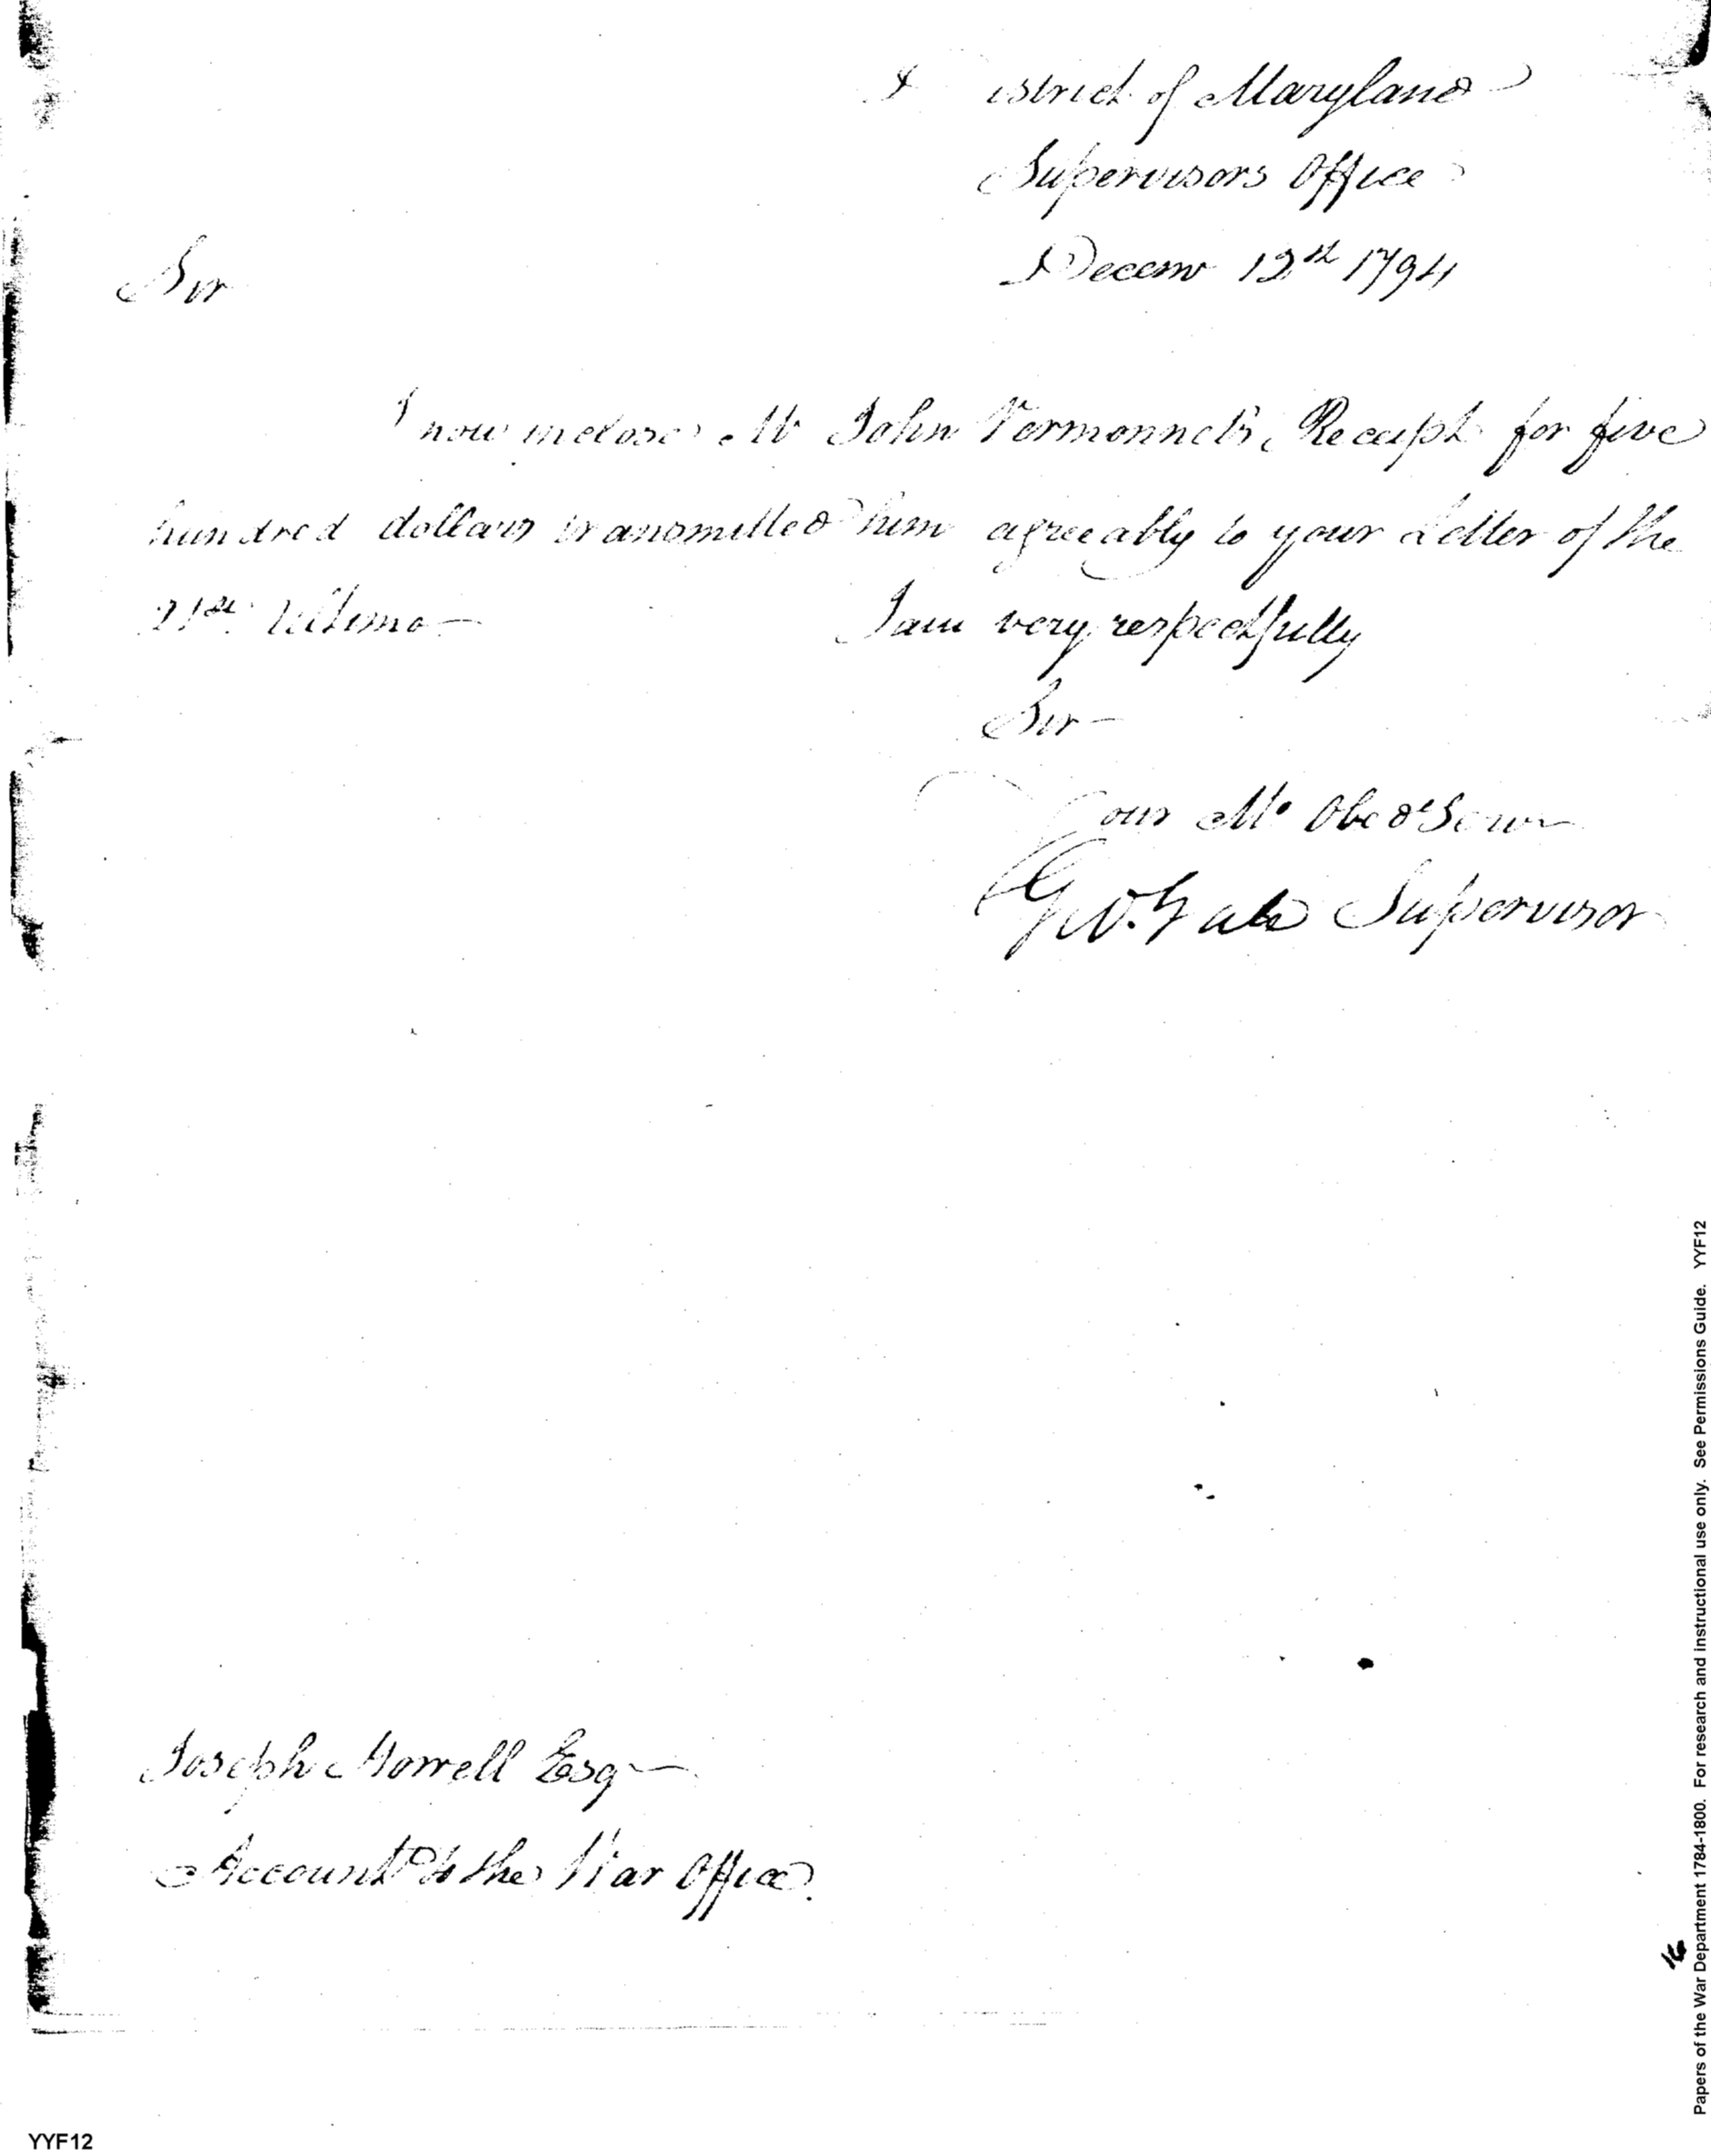 District of Maryland
Supervisors Office
Decemr 12th 1794
Sir
I now inclose Mr John Vermonnets Receipt for five
hundred dollars transmitted him agreeably to your Letter of the
21st Ultimo—
I am very respectfully
Sir—
Your Mo Obed Servt
Geo. Gale Supervisor
Joseph Howell Esq—
Accountt to the War Office.
16
Papers of the War Department 1784-1800. For research and instructional use only. See Permissions Guide. YYF12
YYF12